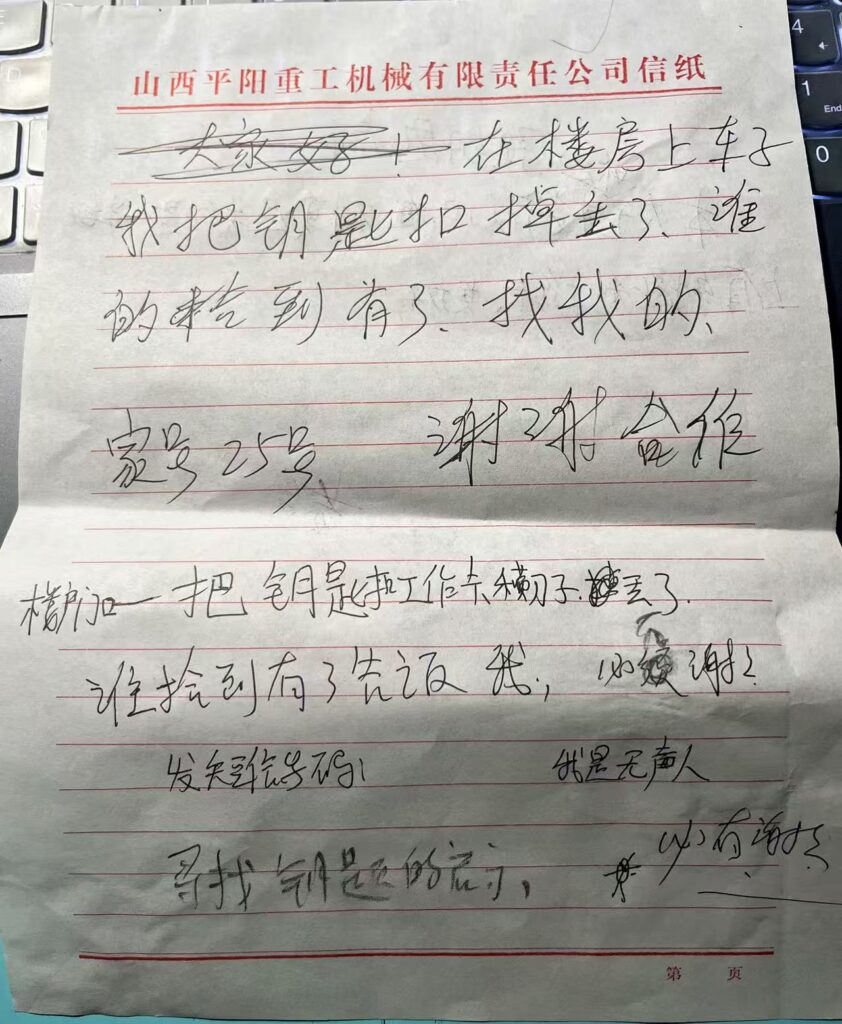 山西平阳重工机械有限责任公司信纸
大家好！在楼房上车子
我把钥匙扣掉丢了、谁
的拾到有了、找我的、
家号25号 谢谢合作
一把钥匙扣工作 丢了.
谁拾到有了告 我, 必须谢!
发短信号码! 我是无声人
寻找钥匙的启示, 必有谢!
第 页